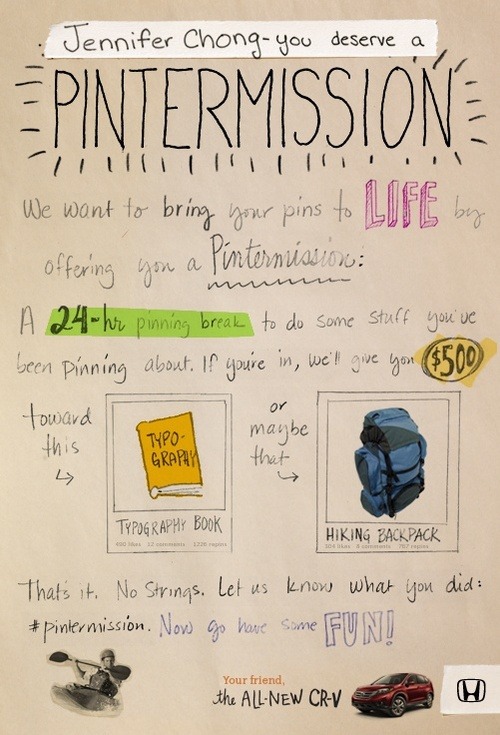 Jennifer Chong-you deserve a
PINTERMISSION
We want to bring your pins to LIFE by
offering you a Pintermission:
A 24-hr pinning break to do some stuff you've
been pinning about. If you're in, we'll give you $500
toward
this
TYPO-
GRAPHY
TYPOGRAPHY BOOK
490 likes 12 comments 1226 repins
or
maybe
that
HIKING BACKPACK
104 likes 8 comments 762 repins
That's it. No Strings. Let us know what you did:
#pintermission. Now go have some FUN!
Your friend,
the ALL-NEW CR-V